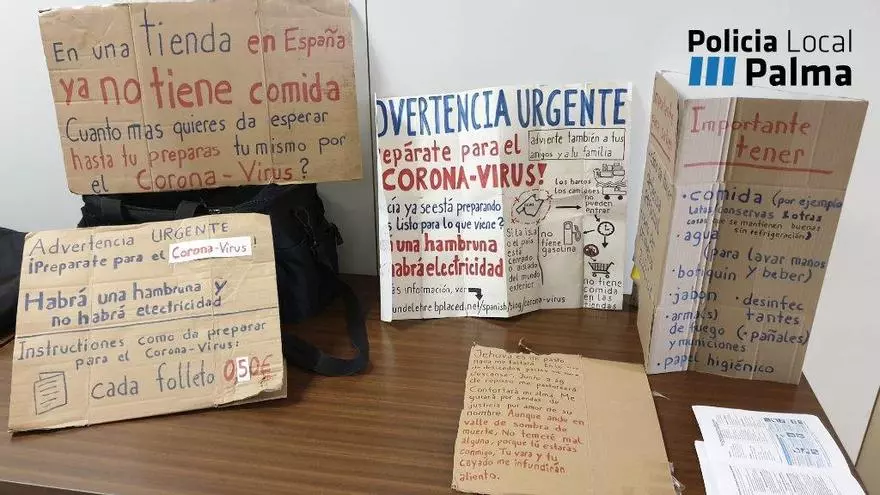 Policia Local
Palma
En una tienda en España
ya no tiene comida
Cuanto mas quieres da esperar
hasta tu preparas tu mismo por
el Corona-Virus?
Advertencia URGENTE
¡Preparate para el Corona-Virus!
Habrá una hambruna y
no habrá electricidad
Instructiones como da preparar
para el Corona-Virus:
cada folleto 0,50€
DVERTENCIA URGENTE
epárate para el
CORONA-VIRUS!
cia ya se está preparando
listo para lo que viene?
n una hambruna
habrá electricidad
as información, ver
undelehre.bplaced.net/spanish/
corona-virus
advierte también a tus
amigos y a tu familia
los barcos
los camiones
no pueden
entrar
Si la isla
o el país
está cerrado
o aislado
del mundo
exterior
no tiene
gasolina
no tiene
comida
en las
tiendas
Importante
tener
· comida (por ejemplo
Latas, conservas & otras
cosas que se mantienen buenas
sin refrigeración)
· agua
(para lavar manos
y beber)
· botiquin
· jabon
· desinfec
tantes
· arma(s)
de fuego
y municiones
· (pañales)
· papel
higiénico
Jehova es mi pasto
nada me faltará
descansar. Junto a ag
de reposo me pastoreará
Confortará mi alma. Me
guiará por sendas de
justicia por amor de su
nombre Aunque ande en
valle de sombra de
muerte, No temeré mal
alguno, porque tú estarás
conmigo, Tu vara y tu
cayado me infundirán
aliento.